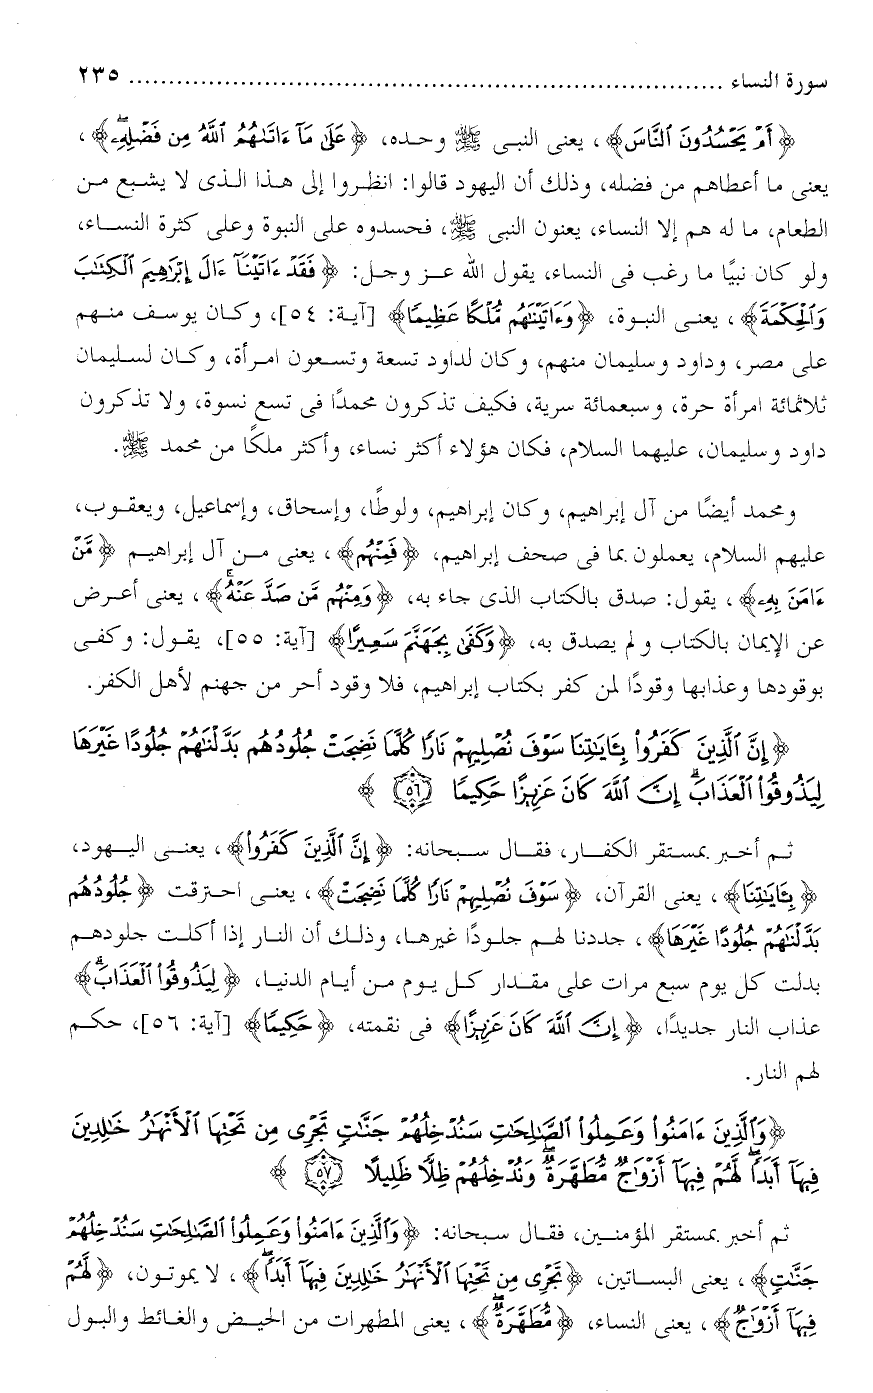 سورة النساء ........................................................................... ٢٣٥
﴿أَمْ يَحْسُدُونَ ٱلنَّاسَ﴾، يعنى النبى ﷺ وحده، ﴿عَلَىٰ مَآ ءَاتَىٰهُمُ ٱللَّهُ مِن فَضْلِهِۦ﴾،
يعنى ما أعطاهم من فضله، وذلك أن اليهود قالوا: انظروا إلى هذا الذى لا يشبع من
الطعام، ما له هم إلا النساء، يعنون النبى ﷺ، فحسدوه على النبوة وعلى كثرة النساء،
ولو كان نبيًا ما رغب فى النساء، يقول الله عز وجل: ﴿فَقَدْ ءَاتَيْنَآ ءَالَ إِبْرَٰهِيمَ ٱلْكِتَٰبَ
وَٱلْحِكْمَةَ﴾، يعنى النبوة، ﴿وَءَاتَيْنَٰهُم مُّلْكًا عَظِيمًا﴾ [آية: ٥٤]، وكان يوسف منهم
على مصر، وداود وسليمان منهم، وكان لداود تسعة وتسعون امرأة، وكان لسليمان
ثلاثمائة امرأة حرة، وسبعمائة سرية، فكيف تذكرون محمدًا فى تسع نسوة، ولا تذكرون
داود وسليمان، عليهما السلام، فكان هؤلاء أكثر نساء، وأكثر ملكًا من محمد ﷺ.
ومحمد أيضًا من آل إبراهيم، وكان إبراهيم، ولوطًا، وإسحاق، وإسماعيل، ويعقوب،
عليهم السلام، يعملون بما فى صحف إبراهيم، ﴿فَمِنْهُم﴾، يعنى من آل إبراهيم ﴿مَّنْ
ءَامَنَ بِهِۦ﴾، يقول: صدق بالكتاب الذى جاء به، ﴿وَمِنْهُم مَّن صَدَّ عَنْهُ﴾، يعنى أعرض
عن الإيمان بالكتاب ولم يصدق به، ﴿وَكَفَىٰ بِجَهَنَّمَ سَعِيرًا﴾ [آية: ٥٥]، يقول: وكفى
بوقودها وعذابها وقودًا لمن كفر بكتاب إبراهيم، فلا وقود أحر من جهنم لأهل الكفر.
﴿إِنَّ ٱلَّذِينَ كَفَرُوا۟ بِـَٔايَٰتِنَا سَوْفَ نُصْلِيهِمْ نَارًا كُلَّمَا نَضِجَتْ جُلُودُهُم بَدَّلْنَٰهُمْ جُلُودًا غَيْرَهَا
لِيَذُوقُوا۟ ٱلْعَذَابَ ۗ إِنَّ ٱللَّهَ كَانَ عَزِيزًا حَكِيمًا ٥٦﴾
ثم أخبر بمستقر الكفار، فقال سبحانه: ﴿إِنَّ ٱلَّذِينَ كَفَرُوا۟﴾، يعنى اليهود،
﴿بِـَٔايَٰتِنَا﴾، يعنى القرآن، ﴿سَوْفَ نُصْلِيهِمْ نَارًا كُلَّمَا نَضِجَتْ﴾، يعنى احترقت ﴿جُلُودُهُم
بَدَّلْنَٰهُمْ جُلُودًا غَيْرَهَا﴾، جددنا لهم جلودًا غيرها، وذلك أن النار إذا أكلت جلودهم
بدلت كل يوم سبع مرات على مقدار كل يوم من أيام الدنيا، ﴿لِيَذُوقُوا۟ ٱلْعَذَابَ ۗ﴾
عذاب النار جديدًا، ﴿إِنَّ ٱللَّهَ كَانَ عَزِيزًا﴾ فى نقمته، ﴿حَكِيمًا﴾ [آية: ٥٦]، حكم
لهم النار.
﴿وَٱلَّذِينَ ءَامَنُوا۟ وَعَمِلُوا۟ ٱلصَّٰلِحَٰتِ سَنُدْخِلُهُمْ جَنَّٰتٍ تَجْرِى مِن تَحْتِهَا ٱلْأَنْهَٰرُ خَٰلِدِينَ
فِيهَآ أَبَدًا ۖ لَّهُمْ فِيهَآ أَزْوَٰجٌ مُّطَهَّرَةٌ ۖ وَنُدْخِلُهُمْ ظِلًّا ظَلِيلًا ٥٧﴾
ثم أخبر بمستقر المؤمنين، فقال سبحانه: ﴿وَٱلَّذِينَ ءَامَنُوا۟ وَعَمِلُوا۟ ٱلصَّٰلِحَٰتِ سَنُدْخِلُهُمْ
جَنَّٰتٍ﴾، يعنى البساتين، ﴿تَجْرِى مِن تَحْتِهَا ٱلْأَنْهَٰرُ خَٰلِدِينَ فِيهَآ أَبَدًا ۖ﴾، لا يموتون، ﴿لَّهُمْ
فِيهَآ أَزْوَٰجٌ﴾، يعنى النساء، ﴿مُّطَهَّرَةٌ ۖ﴾، يعنى المطهرات من الحيض والغائط والبول